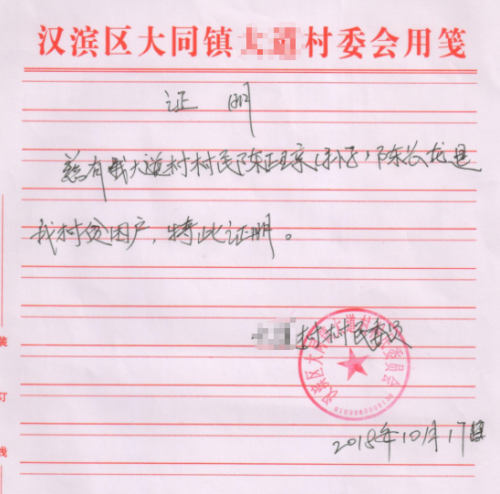 汉滨区大同镇大道村委会用笺
证明
兹有我大道村村民陈正京(孙子),陈长龙是
我村贫困户,特此证明。
村村民委员
汉滨区大同镇大道村村民委员会
2018年10月17日
装
订
线